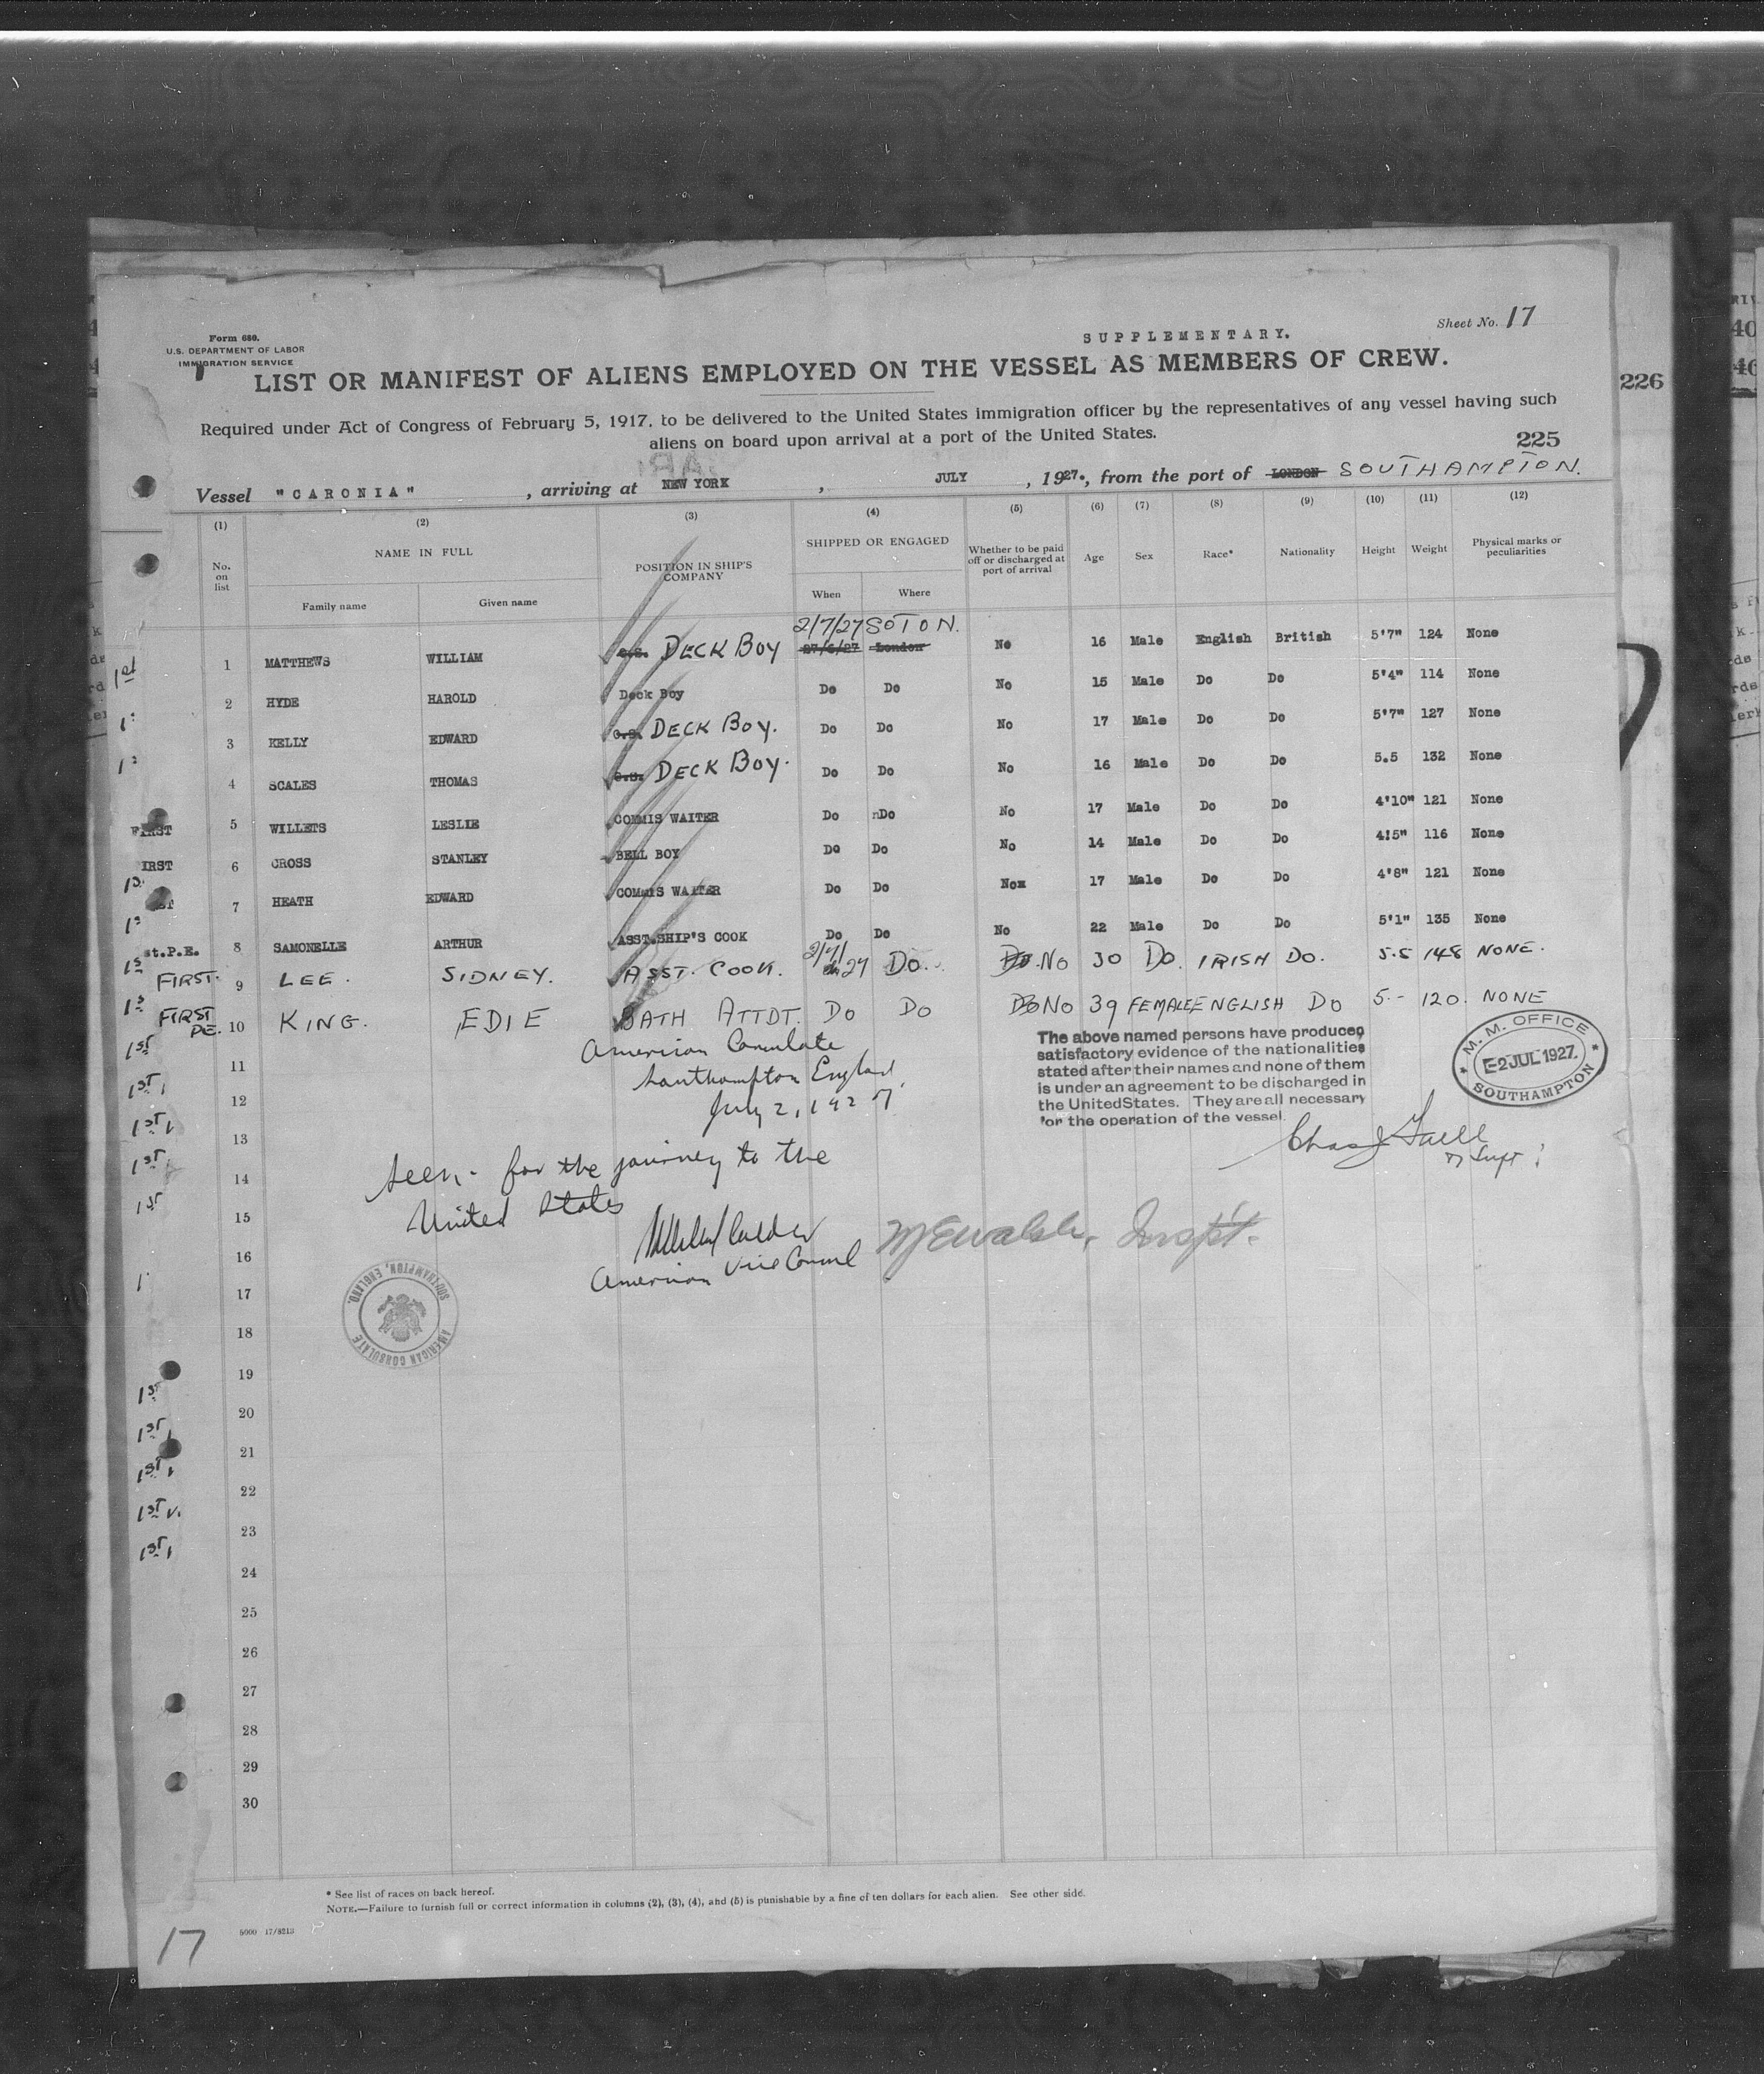 SUPPLEMENTARY.
Sheet No. 17
Form 680.
U.S. DEPARTMENT OF LABOR
IMMIGRATION SERVICE
LIST OR MANIFEST OF ALIENS EMPLOYED ON THE VESSEL AS MEMBERS OF CREW.
226
Required under Act of Congress of February 5, 1917, to be delivered to the United States immigration officer by the representatives of any vessel having such
aliens on board upon arrival at a port of the United States.
225
Vessel "CARONIA", arriving at NEW YORK, JULY, 1927., from the port of LONDON SOUTHAMPTON.
(1) (2) (3) (4) (5) (6) (7) (8) (9) (10) (11) (12)
No. on list NAME IN FULL POSITION IN SHIP'S COMPANY SHIPPED OR ENGAGED Whether to be paid off or discharged at port of arrival Age Sex Race* Nationality Height Weight Physical marks or peculiarities
Family name Given name When Where
2/7/27 SOTON.
1st 1 MATTHEWS WILLIAM O.S. DECK BOY 27/6/27 London No 16 Male English British 5'7" 124 None
2 HYDE HAROLD Deck Boy Do Do No 15 Male Do Do 5'4" 114 None
3 KELLY EDWARD O.S. DECK BOY. Do Do No 17 Male Do Do 5'7" 127 None
4 SCALES THOMAS O.S. DECK BOY. Do Do No 16 Male Do Do 5.5 132 None
FIRST 5 WILLETS LESLIE COMMIS WAITER Do nDo No 17 Male Do Do 4'10" 121 None
IRST 6 CROSS STANLEY BELL BOY Do Do No 14 Male Do Do 4!5" 116 None
7 HEATH EDWARD COMMIS WAITER Do Do Nox 17 Male Do Do 4'8" 121 None
st.P.E. 8 SAMONELLE ARTHUR ASST.SHIP'S COOK Do Do No 22 Male Do Do 5'1" 135 None
FIRST. 9 LEE. SIDNEY. ASST. COOK. 2/7/27 DO. Do. NO 30 DO. IRISH DO. 5.5 148 NONE.
FIRST PE. 10 KING. EDIE BATH ATTDT. DO DO DO NO 39 FEMALE ENGLISH DO 5.- 120. NONE
The above named persons have produced
satisfactory evidence of the nationalities
stated after their names and none of them
is under an agreement to be discharged in
the United States. They are all necessary
for the operation of the vessel.
M. M. OFFICE
2 JUL 1927.
SOUTHAMPTON
American Consulate
Southampton England,
July 2, 1927
Seen - for the journey to the
United States
American Vice Consul
Insp't.
AMERICAN CONSULATE
SOUTHAMPTON, ENGLAND.
11
12
13
14
15
16
17
18
19
20
21
22
23
24
25
26
27
28
29
30
* See list of races on back hereof.
NOTE.—Failure to furnish full or correct information in columns (2), (3), (4), and (5) is punishable by a fine of ten dollars for each alien. See other side.
5000 17/8213
17